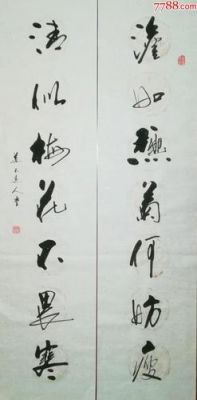 7788.com
澹如龝菊何妨瘦
清似梅花不畏寒